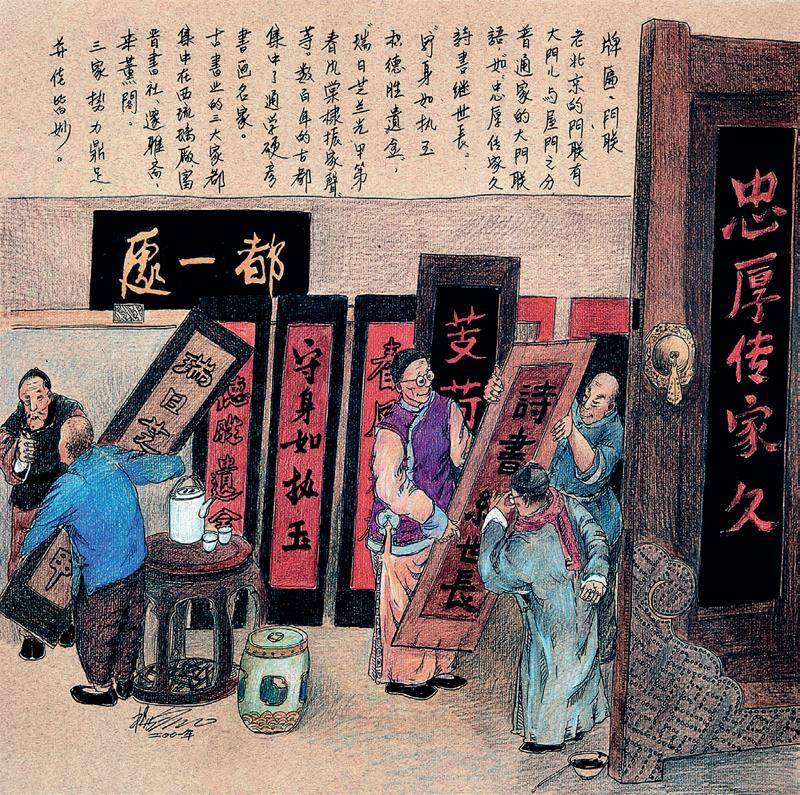 牌匾、門联
老北京的門联有
大門儿与屋門之分,
普通家的大門联
語,如"忠厚传家久
詩書继世長"、
"守身如执玉
积德胜遺金",
"瑞日芝兰光甲第
春风棠棣振家聲"
等。数百年的古都
集中了通学硕彦
書画名家。
古書业的三大家都
集中在西琉璃廠,富
晋書社、邃雅斋、
来薰閣。
三家势力鼎足
并佳皆妙。
忠厚传家久
都一處
詩書继世長
春风
守身如执玉
德胜遺金
瑞日芝
2001年